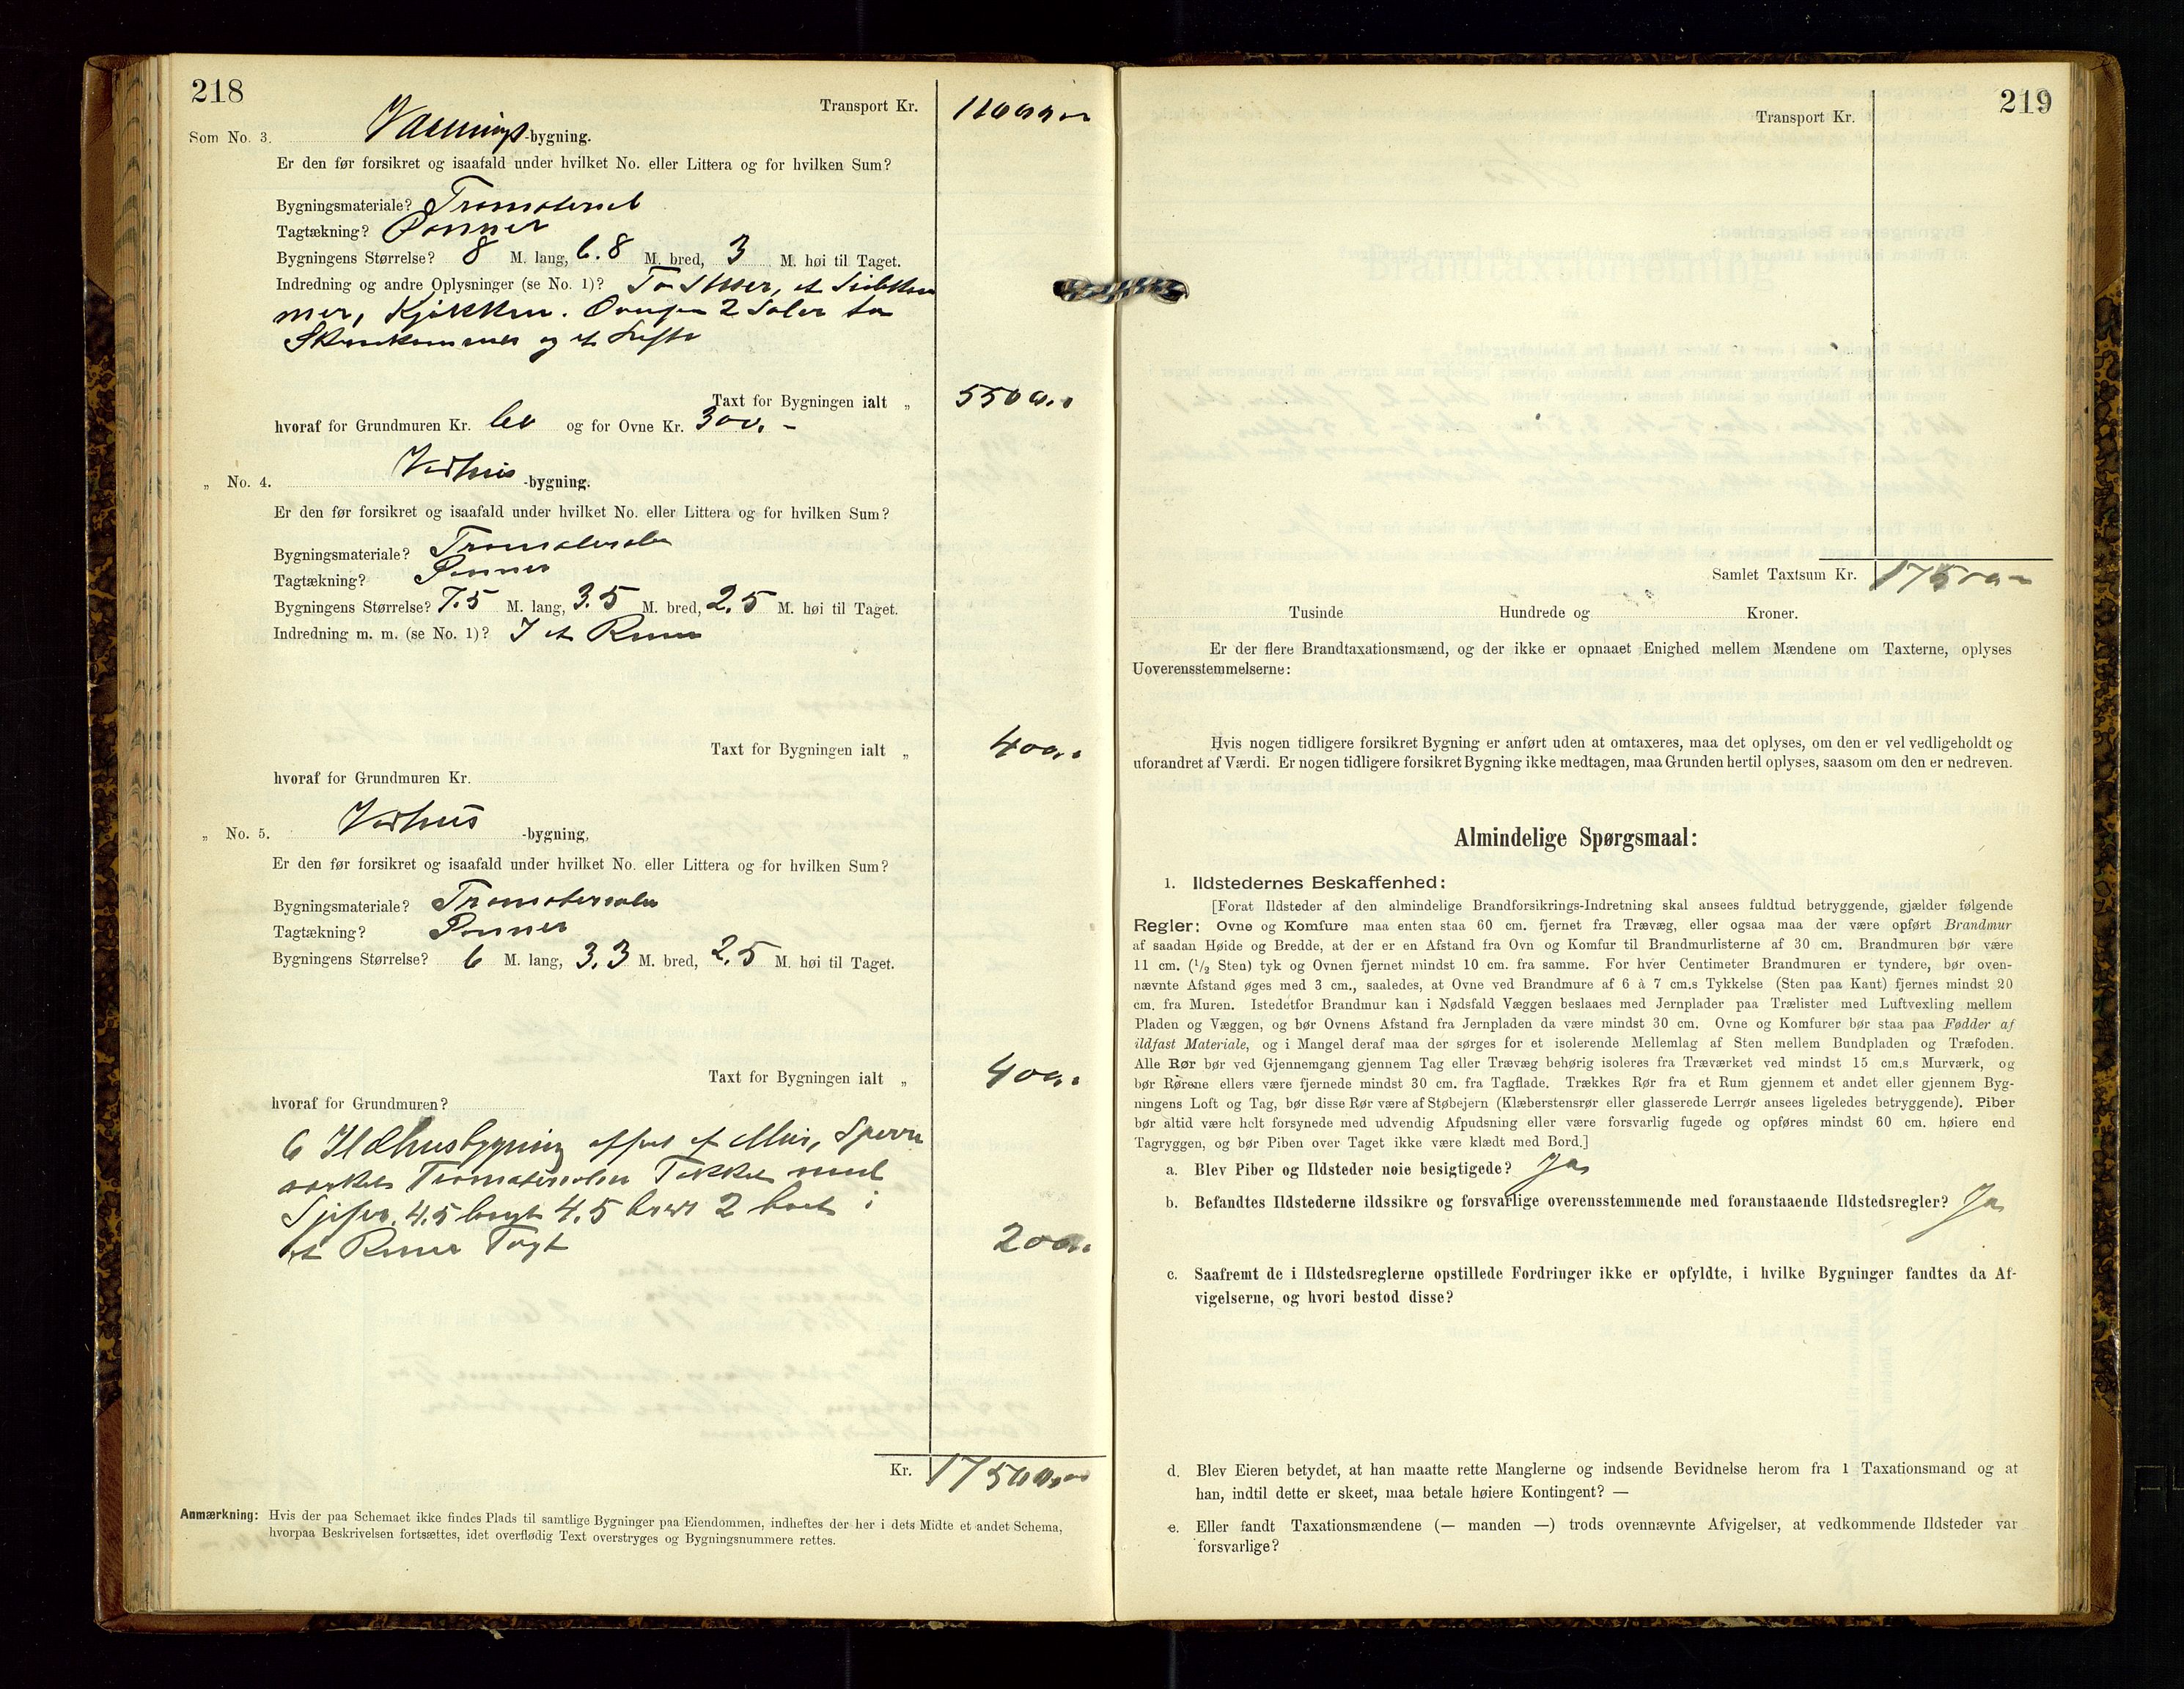 218
Transport Kr. 11000.-
Som No. 3. Vaanings-bygning.
Er den før forsikret og isaafald under hvilket No. eller Littera og for hvilken Sum?
Bygningsmateriale? Træmateriel
Tagtækning? Panner
Bygningens Størrelse? 8 M. lang, 6.8 M. bred, 3 M. høi til Taget.
Indredning og andre Oplysninger (se No. 1)? To Stuer, et
mer, Kjøkken. 2 Saler to
og et
Taxt for Bygningen ialt „ 5500.
hvoraf for Grundmuren Kr. 60 og for Ovne Kr. 300.-
„ No. 4. Vedhus-bygning.
Er den før forsikret og isaafald under hvilket No. eller Littera og for hvilken Sum?
Bygningsmateriale? Træmaterialer
Tagtækning? Panner
Bygningens Størrelse? 7.5 M. lang, 3.5 M. bred, 2.5 M. høi til Taget.
Indredning m. m. (se No. 1)? I et Rum
Taxt for Bygningen ialt „ 400.
hvoraf for Grundmuren Kr.
„ No. 5. Vedhus-bygning.
Er den før forsikret og isaafald under hvilket No. eller Littera og for hvilken Sum?
Bygningsmateriale? Træmaterialer
Tagtækning? Panner
Bygningens Størrelse? 6 M. lang, 3.3 M. bred, 2.5 M. høi til Taget.
Taxt for Bygningen ialt „ 400.
hvoraf for Grundmuren?
6 Ildhusbygning af Mur,
Træmaterialer Tækket med
Skifer. 4.5 langt 4.5 bredt 2 høit i
et Rum Taxt 200.
Kr. 17500.00
Anmærkning: Hvis der paa Schemaet ikke findes Plads til samtlige Bygninger paa Eiendommen, indheftes der her i dets Midte et andet Schema,
hvorpaa Beskrivelsen fortsættes, idet overflødig Text overstryges og Bygningsnummere rettes.
219
Transport Kr.
Samlet Taxtsum Kr. 17500-
Tusinde Hundrede og Kroner.
Er der flere Brandtaxationsmænd, og der ikke er opnaaet Enighed mellem Mændene om Taxterne, oplyses
Uoverensstemmelserne:
Hvis nogen tidligere forsikret Bygning er anført uden at omtaxeres, maa det oplyses, om den er vel vedligeholdt og
uforandret af Værdi. Er nogen tidligere forsikret Bygning ikke medtagen, maa Grunden hertil oplyses, saasom om den er nedreven.
Almindelige Spørgsmaal:
1. Ildstedernes Beskaffenhed:
[Forat Ildsteder af den almindelige Brandforsikrings-Indretning skal ansees fuldtud betryggende, gjælder følgende
Regler: Ovne og Komfure maa enten staa 60 cm. fjernet fra Trævæg, eller ogsaa maa der være opført Brandmur
af saadan Høide og Bredde, at der er en Afstand fra Ovn og Komfur til Brandmurlisterne af 30 cm. Brandmuren bør være
11 cm. (1/2 Sten) tyk og Ovnen fjernet mindst 10 cm. fra samme. For hver Centimeter Brandmuren er tyndere, bør oven-
nævnte Afstand øges med 3 cm., saaledes, at Ovne ved Brandmure af 6 à 7 cm.s Tykkelse (Sten paa Kant) fjernes mindst 20
cm. fra Muren. Istedetfor Brandmur kan i Nødsfald Væggen beslaaes med Jernplader paa Trælister med Luftvexling mellem
Pladen og Væggen, og bør Ovnens Afstand fra Jernpladen da være mindst 30 cm. Ovne og Komfurer bør staa paa Fødder af
ildfast Materiale, og i Mangel deraf maa der sørges for et isolerende Mellemlag af Sten mellem Bundpladen og Træfoden.
Alle Rør bør ved Gjennemgang gjennem Tag eller Trævæg behørig isoleres fra Træværket ved mindst 15 cm.s Murværk, og
bør Rørene ellers være fjernede mindst 30 cm. fra Tagflade. Trækkes Rør fra et Rum gjennem et andet eller gjennem Byg-
ningens Loft og Tag, bør disse Rør være af Støbejern (Klæberstensrør eller glasserede Lerrør ansees ligeledes betryggende). Piber
bør altid være helt forsynede med udvendig Afpudsning eller være forsvarlig fugede og opføres mindst 60 cm. høiere end
Tagryggen, og bør Piben over Taget ikke være klædt med Bord.]
a. Blev Piber og Ildsteder nøie besigtigede? Ja
b. Befandtes Ildstederne ildssikre og forsvarlige overensstemmende med foranstaaende Ildstedsregler? Ja
c. Saafremt de i Ildstedsreglerne opstillede Fordringer ikke er opfyldte, i hvilke Bygninger fandtes da Af-
vigelserne, og hvori bestod disse?
d. Blev Eieren betydet, at han maatte rette Manglerne og indsende Bevidnelse herom fra 1 Taxationsmand og at
han, indtil dette er skeet, maa betale høiere Kontingent? —
e. Eller fandt Taxationsmændene (— manden —) trods ovennævnte Afvigelser, at vedkommende Ildsteder var
forsvarlige?